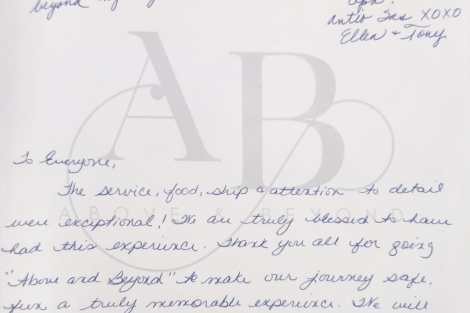 beyond my
XOXO
Ellen & Tony
AB
To Everyone,
The service, food, ship & attention to detail
ABOVE & BEYOND
were exceptional! We are truly blessed to have
had this experience. Thank you all for going
"Above and Beyond" to make our journey safe,
fun & truly memorable experience. We will